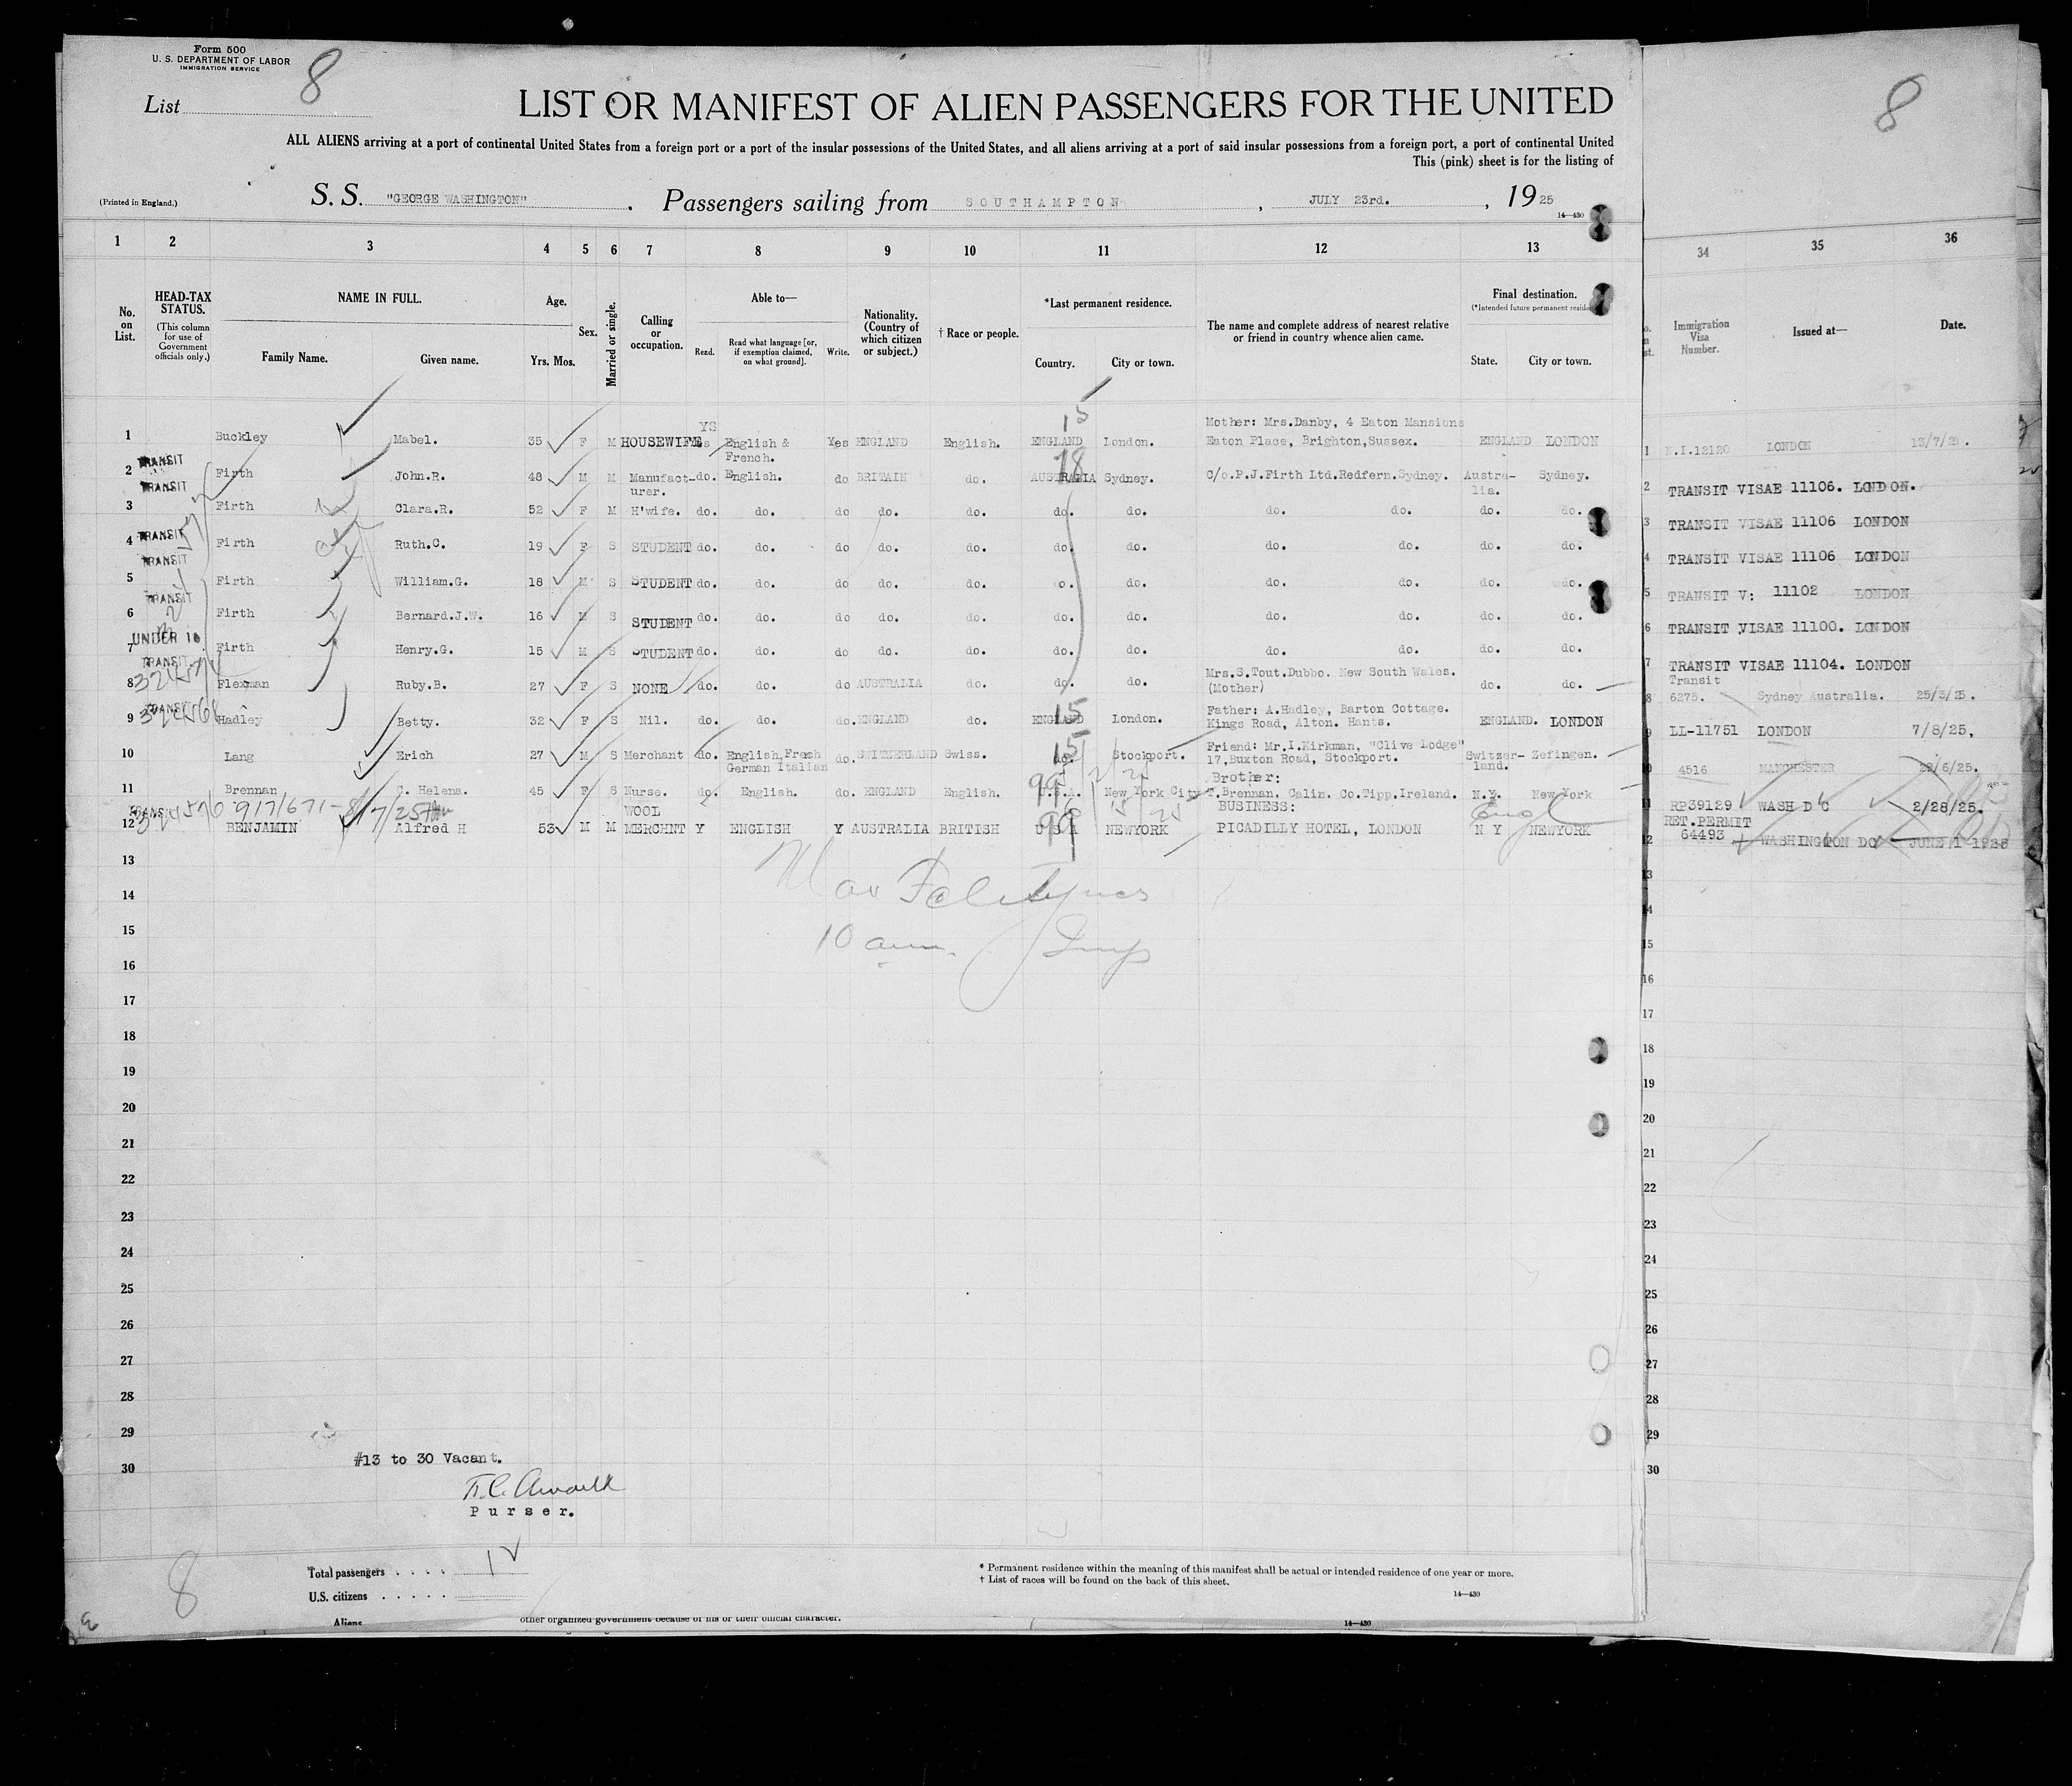 Form 500
U. S. DEPARTMENT OF LABOR
IMMIGRATION SERVICE
List 8
LIST OR MANIFEST OF ALIEN PASSENGERS FOR THE UNITED
ALL ALIENS arriving at a port of continental United States from a foreign port or a port of the insular possessions of the United States, and all aliens arriving at a port of said insular possessions from a foreign port, a port of continental United
This (pink) sheet is for the listing of
(Printed in England.) S. S. "GEORGE WASHINGTON" . Passengers sailing from SOUTHAMPTON , JULY 23rd. , 1925
14—430
8
1 2 3 4 5 6 7 8 9 10 11 12 13 34 35 36
No. on List.
HEAD-TAX STATUS.
(This column for use of Government officials only.)
NAME IN FULL.
Family Name. Given name.
Age.
Yrs. Mos.
Sex.
Married or single.
Calling or occupation.
Able to—
Read. Read what language [or, if exemption claimed, on what ground]. Write.
Nationality. (Country of which citizen or subject.)
† Race or people.
*Last permanent residence.
Country. City or town.
The name and complete address of nearest relative or friend in country whence alien came.
Final destination.
(*Intended future permanent
State. City or town.
Immigration Visa Number.
Issued at—
Date.
1 Buckley Mabel. 35 F M HOUSEWIFE YS English & French. Yes ENGLAND English. ENGLAND 15 London. Mother: Mrs.Danby, 4 Eaton Mansions Eaton Place, Brighton,Sussex. ENGLAND LONDON 1 12120 LONDON 13/7/25.
2 TRANSIT Firth John.R. 48 M M Manufact-urer. do. English. do BRITAIN do. AUSTRALIA 18 Sydney. C/o.P.J.Firth Ltd.Redfern.Sydney. Austra-lia. Sydney. 2 TRANSIT VISAE 11106. LONDON.
3 TRANSIT Firth Clara.R. 52 F M H'wife. do. do. do do. do. do. do. do. do. do. do. 3 TRANSIT VISAE 11106 LONDON
4 TRANSIT Firth Ruth.C. 19 F S STUDENT do. do. do do. do. do. do. do. do. do. do. 4 TRANSIT VISAE 11106 LONDON
5 TRANSIT Firth William.G. 18 M S STUDENT do. do. do do. do. do. do. do. do. do. do. 5 TRANSIT V: 11102 LONDON
6 TRANSIT Firth Bernard.J.W. 16 M S STUDENT do. do. do do. do. do. do. do. do. do. do. 6 TRANSIT VISAE 11100. LONDON
7 UNDER 16 Firth Henry.G. 15 M S STUDENT do. do. do do. do. do. do. do. do. do. do. 7 TRANSIT VISAE 11104. LONDON
8 TRANSIT Flexman Ruby.B. 27 F S NONE do. do. do AUSTRALIA do. do. do. Mrs.S.Tout.Dubbo. New South Wales. (Mother) do. do. 8 Transit 6275. Sydney Australia. 25/3/25.
9 TRANSIT Hadley Betty. 32 F S Nil. do. do. do. ENGLAND do. ENGLAND 15 London. Father: A.Hadley, Barton Cottage. Kings Road, Alton. Hants. ENGLAND. LONDON 9 LL-11751 LONDON 7/8/25,
10 Lang Erich 27 M S Merchant do. English,French German Italian do. SWITZERLAND Swiss. do. 15 Stockport. Friend: Mr.I.Kirkman, "Clive Lodge" 17,Buxton Road, Stockport. Switzer-land. Zofingen. 10 4516 MANCHESTER 29/6/25.
11 Brennan Helena. 45 F S Nurse. do. English. do. ENGLAND English. U.S.A. 99 New York City Brother: T.Brennan. Calin. Co.Tipp.Ireland. N.Y. New York 11 RP39129 WASH D C 2/28/25.
12 BENJAMIN Alfred H 53 M M WOOL MERCHNT Y ENGLISH Y AUSTRALIA BRITISH U S A 99 NEWYORK BUSINESS: PICADILLY HOTEL, LONDON N Y NEWYORK 12 RET.PERMIT 64493 WASHINGTON DC JUNE 1 1925
13
14
15 10 am.
16
17
18
19
20
21
22
23
24
25
26
27
28
29
30
#13 to 30 Vacant.
Purser.
Total passengers . . . .
U.S. citizens . . . . .
Aliens
8
* Permanent residence within the meaning of this manifest shall be actual or intended residence of one year or more.
† List of races will be found on the back of this sheet.
14—430
other organized government because of his or their official character.
14—430